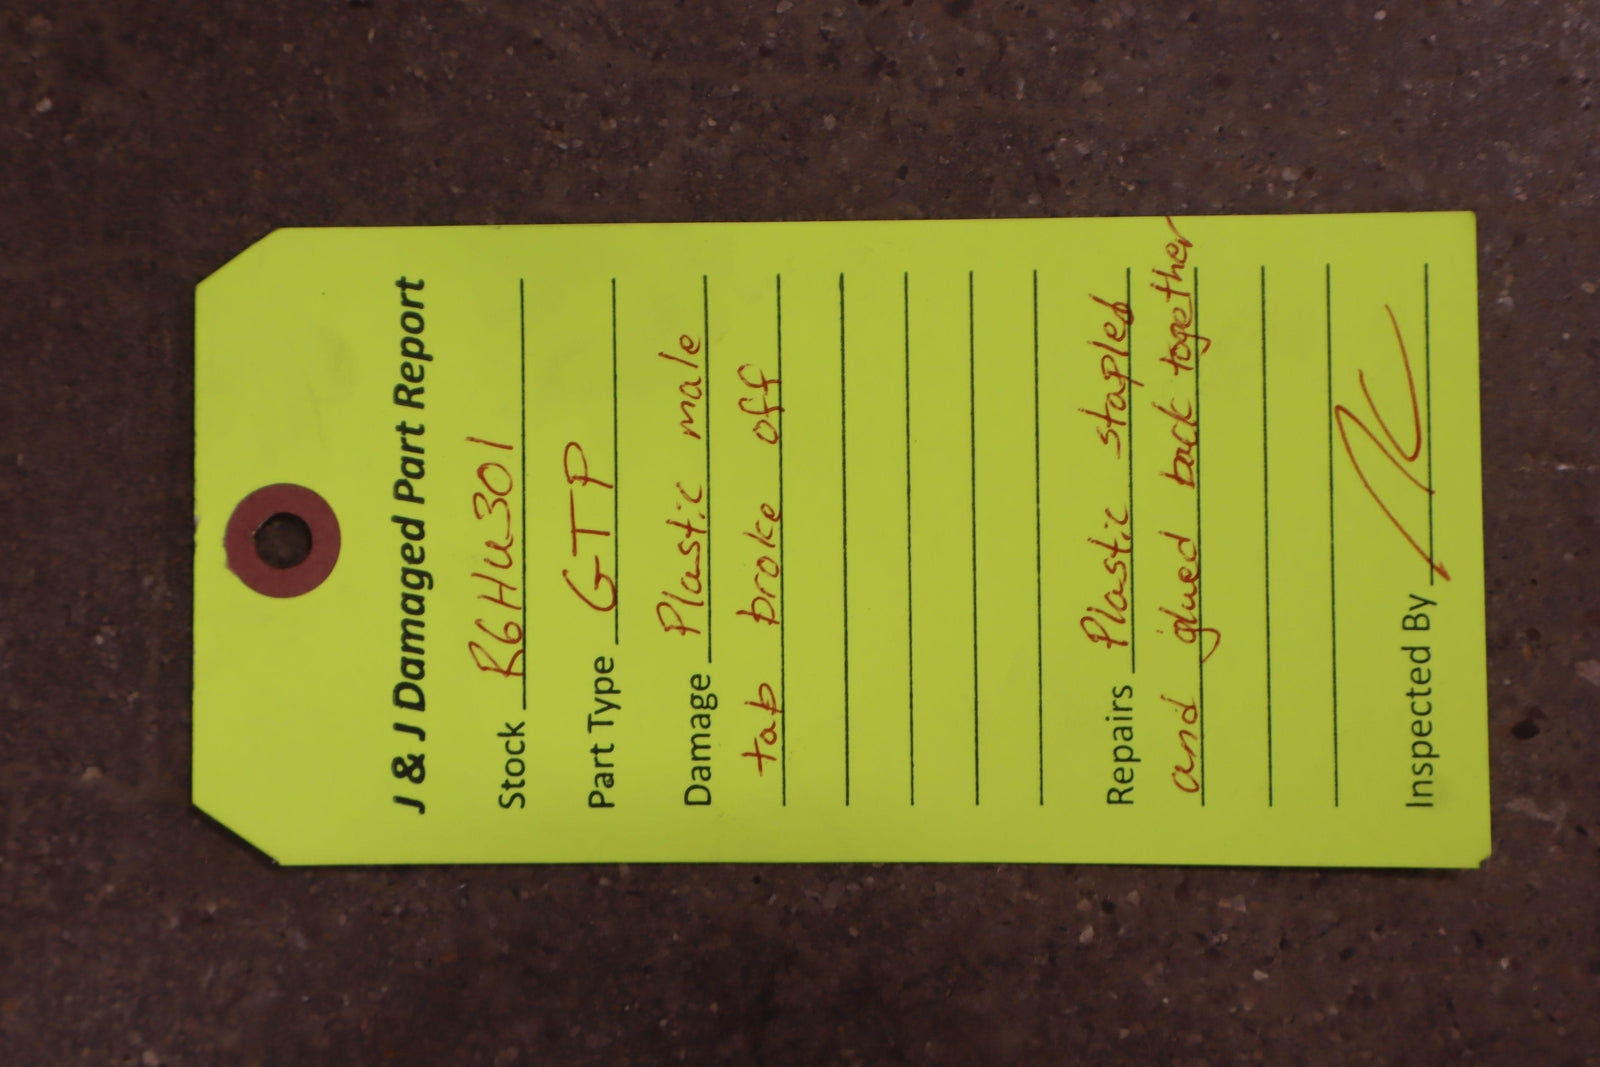 J & J Damaged Part Report
Stock R6Hu301
Part Type GTP
Damage Plastic male
tab broke off
Repairs Plastic stapled
and glued back together
Inspected By